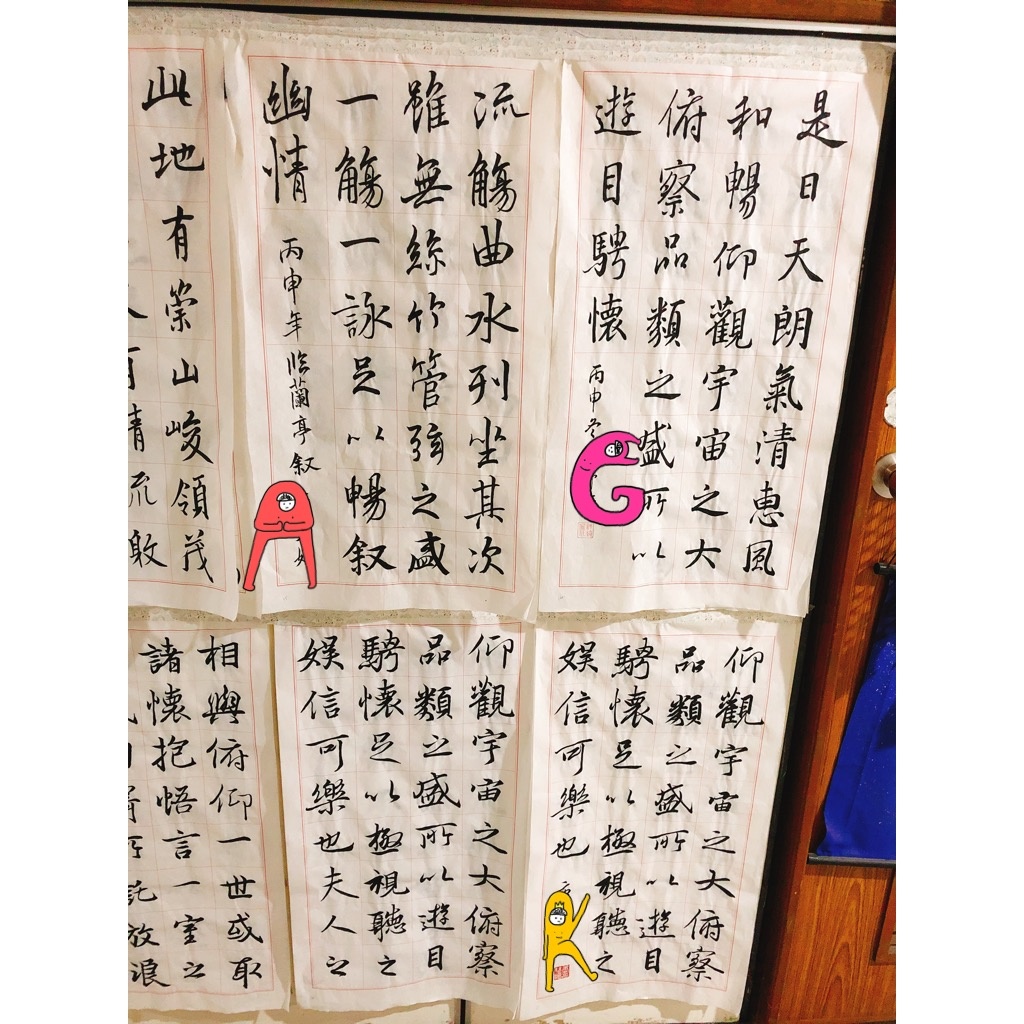 是日天朗氣清惠風
和暢仰觀宇宙之大
俯察品類之盛所以
遊目騁懷
丙申冬
G
流觴曲水列坐其次
雖無絲竹管弦之盛
一觴一詠足以暢叙
幽情
丙申年臨蘭亭叙
A
此地有崇山峻領茂
有清流
仰觀宇宙之大俯察
品類之盛所以遊目
騁懷足以極視聽之
娛信可樂也
K
仰觀宇宙之大俯察
品類之盛所以遊目
騁懷足以極視聽之
娛信可樂也夫人之
相與俯仰一世或取
諸懷抱悟言一室之
託放浪